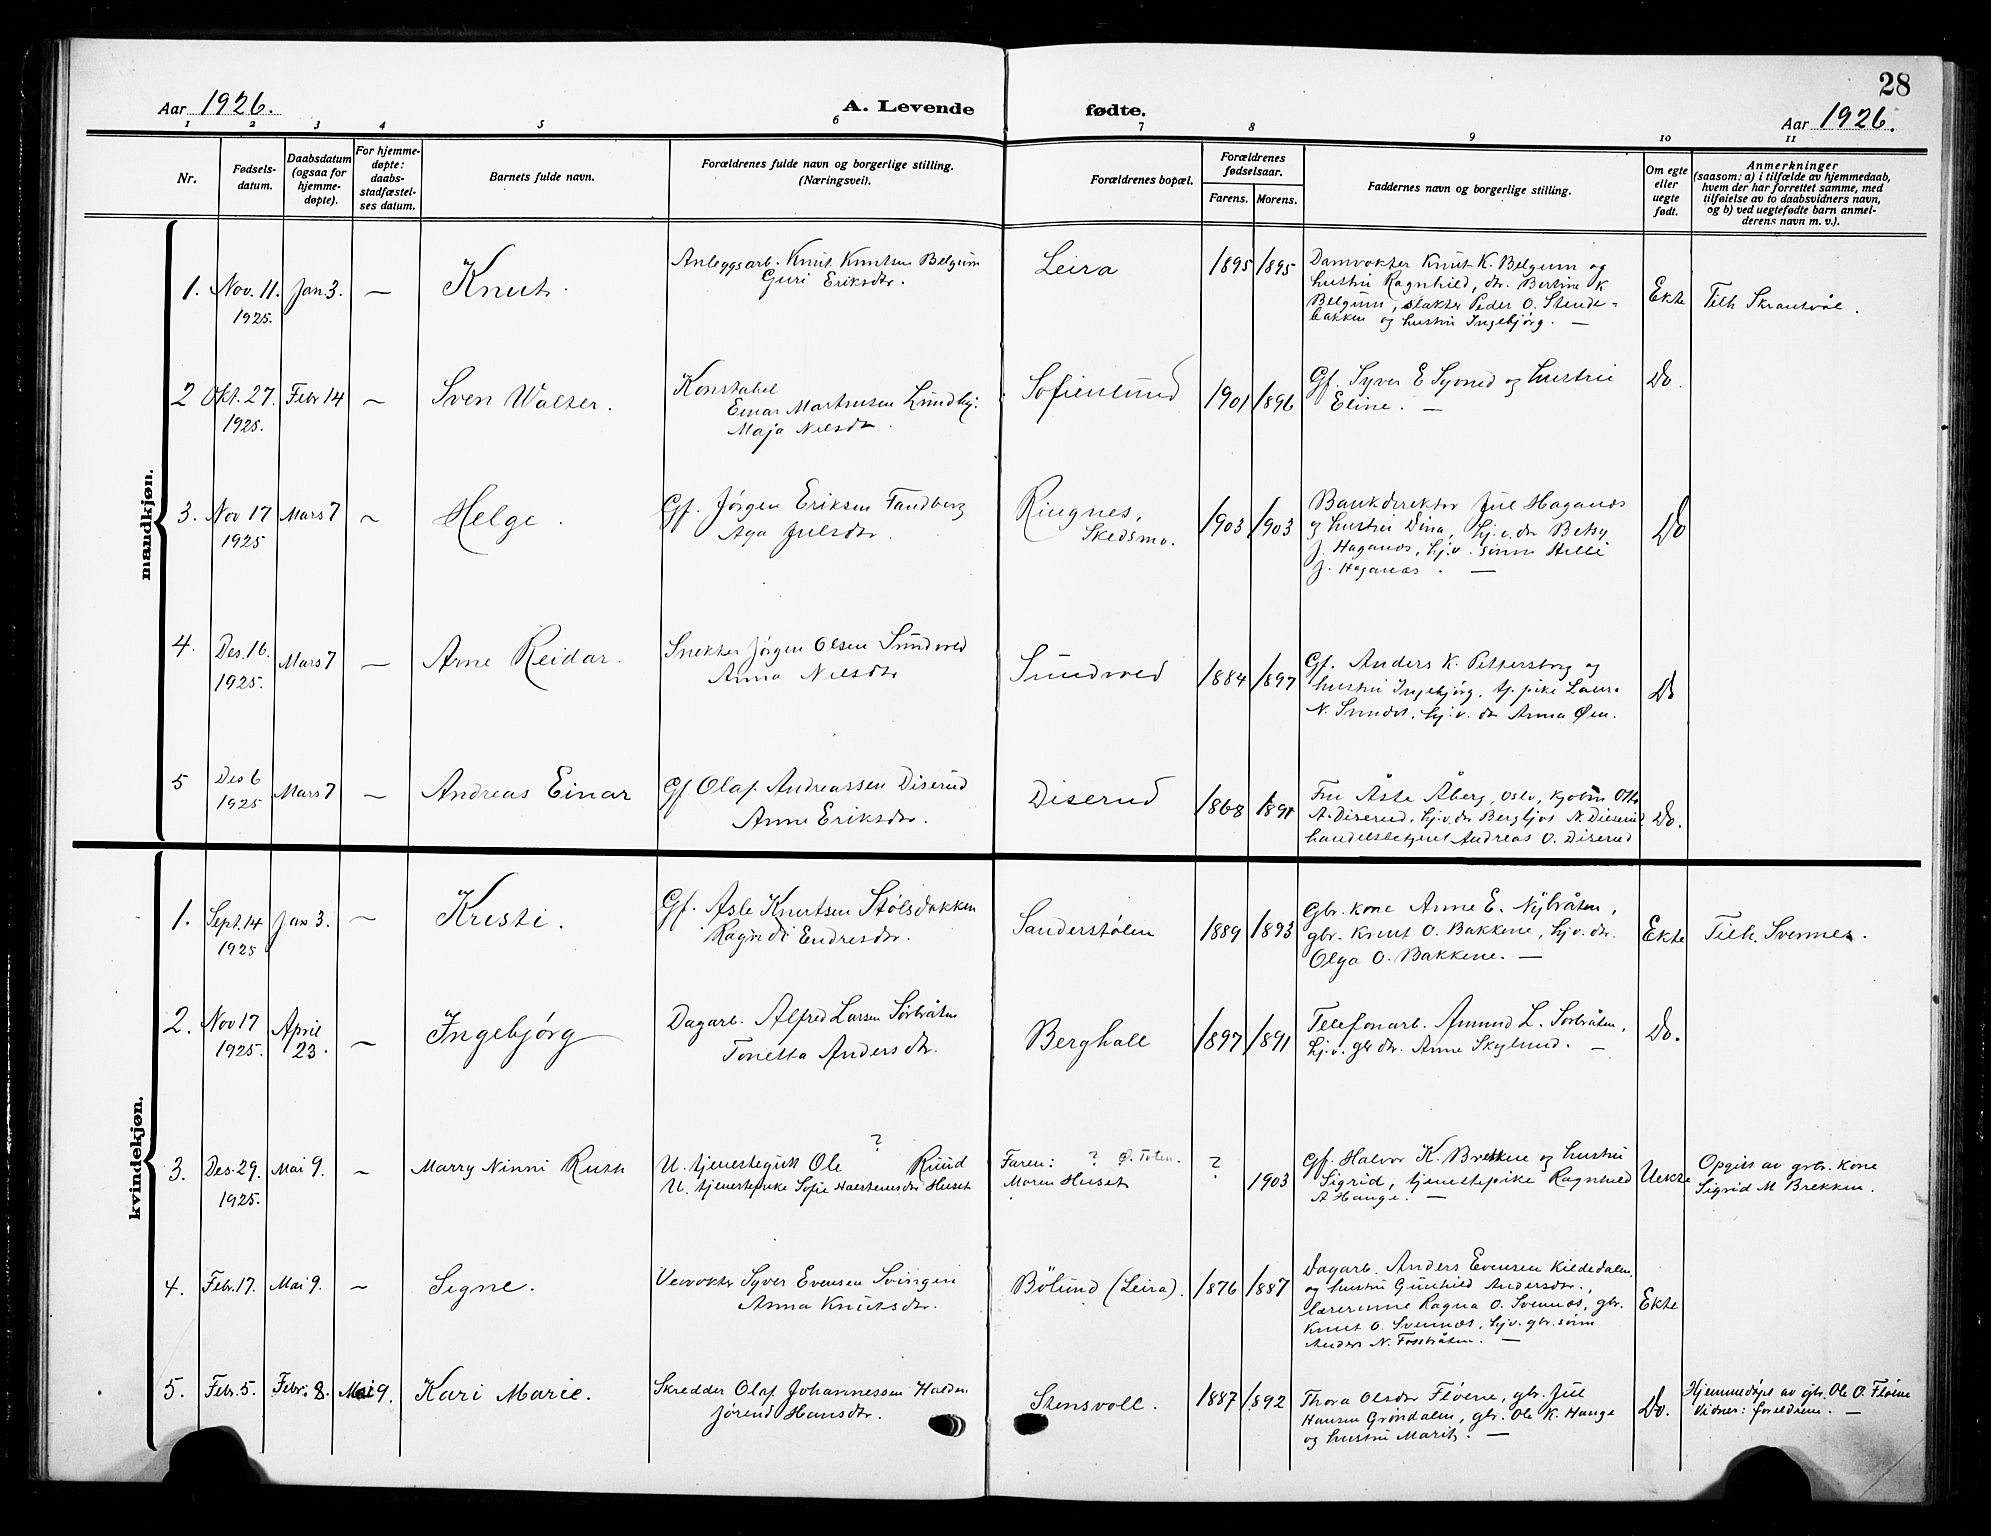 28
Aar 1926.
A. Levende
fødte.
Aar 1926.
1 2 3 4 5 6 7 8 9 10 11
Nr.
Fødsels-
datum.
Daabsdatum
(ogsaa for
hjemme-
døpte).
For hjemme-
døpte:
daabs-
stadfæstel-
ses datum.
Barnets fulde navn.
Forældrenes fulde navn og borgerlige stilling.
(Næringsvei).
Forældrenes bopæl.
Forældrenes
fødselsaar.
Farens. Morens.
Faddernes navn og borgerlige stilling.
Om egte
eller
uegte
født.
Anmerkninger
(saasom: a) i tilfælde av hjemmedaab,
hvem der har forrettet samme, med
tilføielse av to daabsvidners navn,
og b) ved uegtefødte barn anmel-
derens navn m. v.).
mandkjøn.
1. Nov. 11. Jan. 3. —
1925.
Knut.
Anleggsarb. Knut Knutsen Belgum
Guri Eriksdtr.
Leira
1895 1895
Damvokter Knut K. Belgum og
hustru Ragnhild, dtr. Bertine K
Belgum, slakter Peder O. Stende-
bakken og hustru Ingebjørg. —
Ekte
Tilh. Skrautvål.
2 Okt. 27. Febr 14 —
1925.
Sven Walter.
Konstabel
Einar Martinsen Lundby.
Maja Nilsdtr.
Sofienlund
1901 1896
Gf. Syver E Syned og hustru
Eline. —
Do.
3. Nov 17 Mars 7 ~
1925
Helge.
Gf. Jørgen Eriksen Fandberg
Aga Julsdtr.
Ringnes,
Skedsmo.
1903 1903
Bankdirektør Jul Haganæs
og hustru Dina, hj.v. dtr Betsy
J. Haganæs, hj.v. sønn Helle
J. Haganæs. —
Do
4. Des. 16. Mars 7 —
1925.
Arne Reidar.
Snekker Jørgen Olsen Sundvold
Anna Nilsdtr
Sundvold
1884 1897
Gf. Anders K. Pettersborg og
hustru Ingebjørg, tj. pike Laura
N. Sundet, hj.v. dtr Anna Øen.
Do
5 Des 6 Mars 7 —
1925
Andreas Einar
Gf Olaf Andreassen Diserud
Anne Eriksdtr.
Diserud
1868 1891
Fru Åste Åberg, Oslo, kjøbm Otto
A. Diserud, hj.v. dtr Bergljot N. Diserud,
handelsbetjent Andreas O. Diserud
Do.
kvindekjøn.
1. Sept. 14 Jan 3. —
1925
Kristi.
Gf. Asle Knutsen Stølsbakken
Ragndi Endresdtr.
Sanderstølen
1889 1893
Gbr. kone Anne E. Nybråten,
gbr. Knut O. Bakkene, hj.v. dtr.
Olga O. Bakkene. —
Ekte
Tilh. Svennes.
2. Nov 17 April —
1925. 23.
Ingebjørg
Dagarb. Alfred Larsen Sørbråten
Tonetta Andersdtr.
Berghall
1897 1891
Telefonarb. Amund L. Sørbråten,
hj.v. gbr dtr. Anne Skylund. —
Do.
3. Des. 29. Mai 9. ~
1925.
Marry Ninni Ruth
?
U. tjenestegutt Ole Rund
U. tjenestepike Sofie Halstensdtr Huset
Faren: ? Ø. Toten.
Moren Huset
? 1903
Gf. Halvor K. Brekken og hustru
Sigrid, tjenestepike Ragnhild
A Hauge. —
Uekte
Opgitt av gbr. kone
Sigrid M Brekken.
4. Febr. 17. Mai 9. ~
Signe.
Veivokter Syver Evensen Svingen
Anna Knutsdtr.
Bölund (Leira).
1876 1887
Dagarb. Anders Evensen Kildedalen,
og hustru Gunhild Andersdtr.,
lærerinne Ragna O. Svennæs, gbr.
Knut O. Svennæs, hj.v. gbr. sønn
Anders N. Fossbråten. —
Ekte
5. Febr. 5. Febr. 8. Mai 9.
Kari Marie.
Skredder Olaf Johannessen Halden
Jørend Hansdtr.
Stensvoll.
1887 1892
Thora Olsdtr Fløene, gbr. Jul
Hansen Grøndalen, gbr. Ole K. Hauge
og hustru Marit. —
Do.
Hjemmedøpt av gbr. Ole O. Fløene
Vidner: foreldrene. —